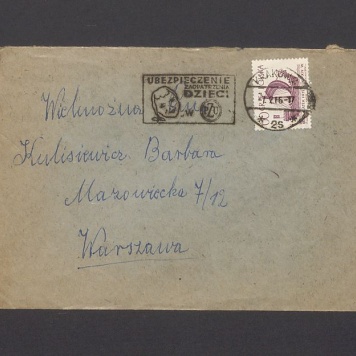 UBEZPIECZENIE
ZAOPATRZENIA
DZIECI
W PZU
KRAKÓW
2S
Wielmożna
Kulisiewicz Barbara
Mazowiecka 7/12
Warszawa